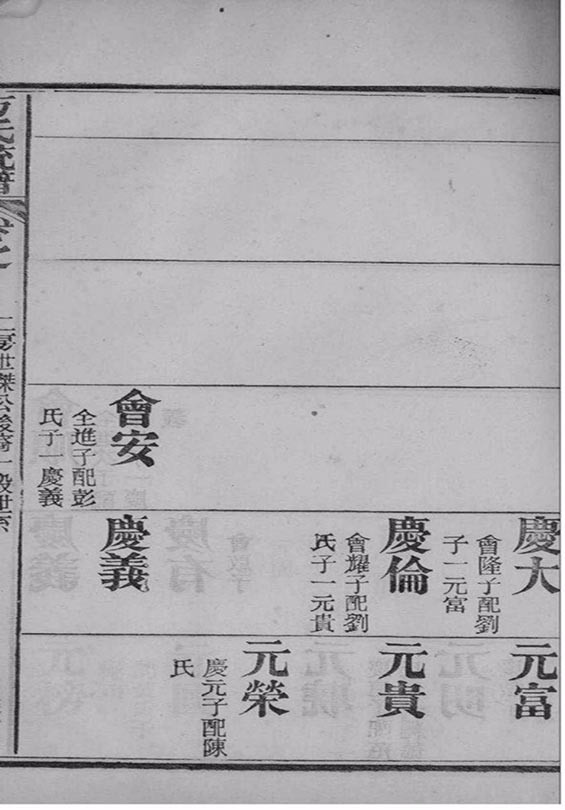 會安
全進子配彭
氏子一慶義
慶大
會隆子配劉
子一元富
慶倫
會耀子配劉
氏子一元貴
慶義
元富
元貴
元榮
慶元子配陳
氏
氏統譜
卷之
二房世傑公後裔一
世系